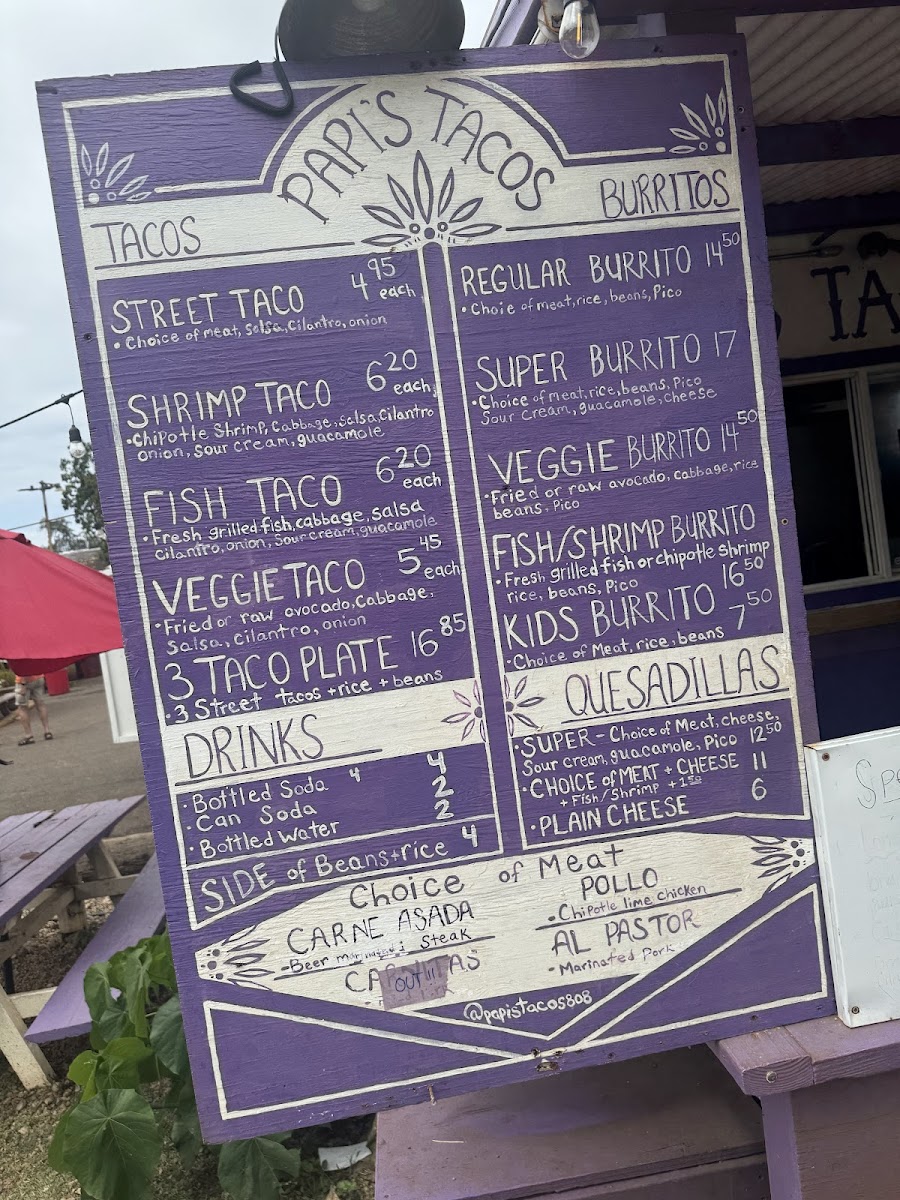 PAPI'S TACOS
TACOS
STREET TACO 4 95 each
• Choice of meat, salsa, cilantro, onion
SHRIMP TACO 6 20 each
• Chipotle Shrimp, Cabbage, Salsa, Cilantro
onion, sour cream, guacamole
FISH TACO 6 20 each
• Fresh grilled fish, cabbage, salsa
cilantro, onion, sour cream, guacamole
VEGGIE TACO 5 45 each
• Fried or raw avocado, Cabbage,
salsa, cilantro, onion
3 TACO PLATE 16 85
• 3 Street tacos + rice + beans
DRINKS
• Bottled Soda 4 4
• Can Soda 2
• Bottled water 2
SIDE of Beans+rice 4
BURRITOS
REGULAR BURRITO 14 50
• Choie of meat, rice, beans, Pico
SUPER BURRITO 17
• Choice of meat, rice, beans, Pico
Sour cream, guacamole, cheese
VEGGIE BURRITO 14 50
• Fried or raw avocado, cabbage, rice
beans, Pico
FISH/SHRIMP BURRITO
• Fresh grilled fish or chipotle shrimp
rice, beans, Pico 16 50
KIDS BURRITO 7 50
• Choice of Meat, rice, beans
QUESADILLAS
• SUPER - Choice of Meat, cheese,
Sour cream, guacamole, Pico 12 50
• CHOICE of MEAT + CHEESE 11
+ Fish/Shrimp + 1 50
• PLAIN CHEESE 6
Choice of Meat
CARNE ASADA
- Beer Steak
OUT!!!
POLLO
- Chipotle lime chicken
AL PASTOR
- Marinated Pork
@papistacos808
TA